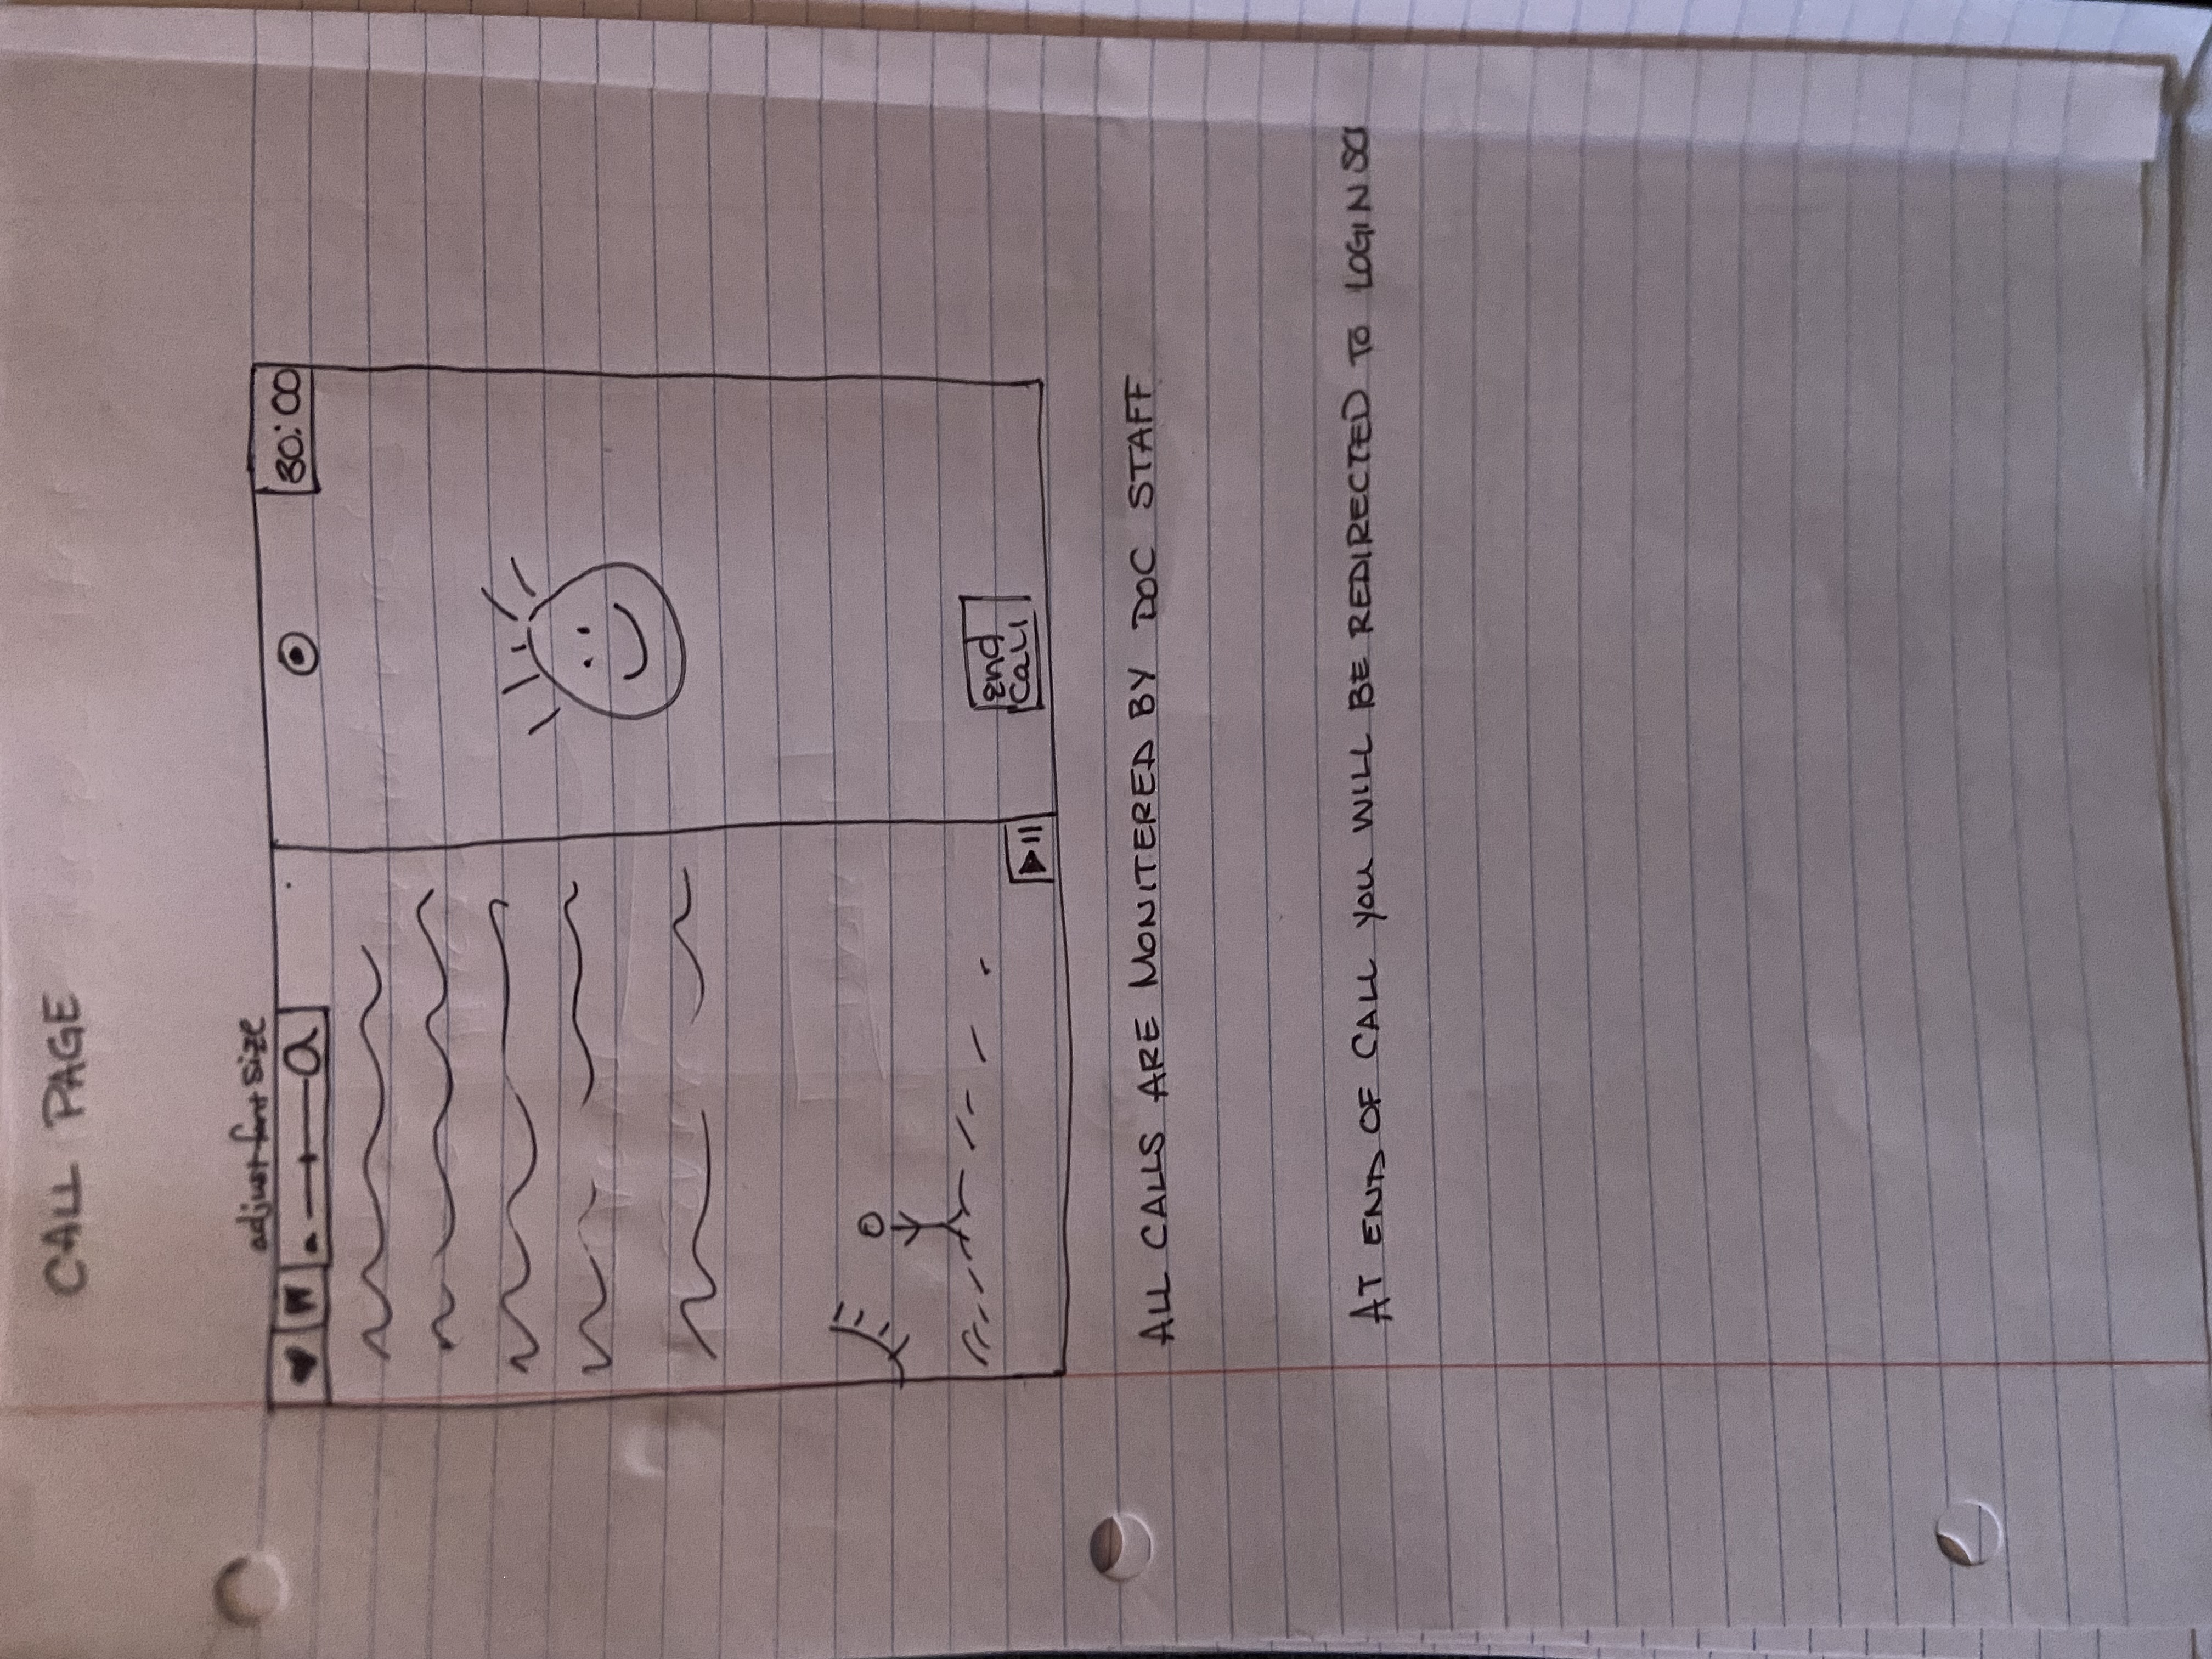 CALL PAGE
adjust font size
a a
30:00
end
call
ALL CALLS ARE MONITERED BY DOC STAFF
AT END OF CALL YOU WILL BE REDIRECTED TO LOGIN